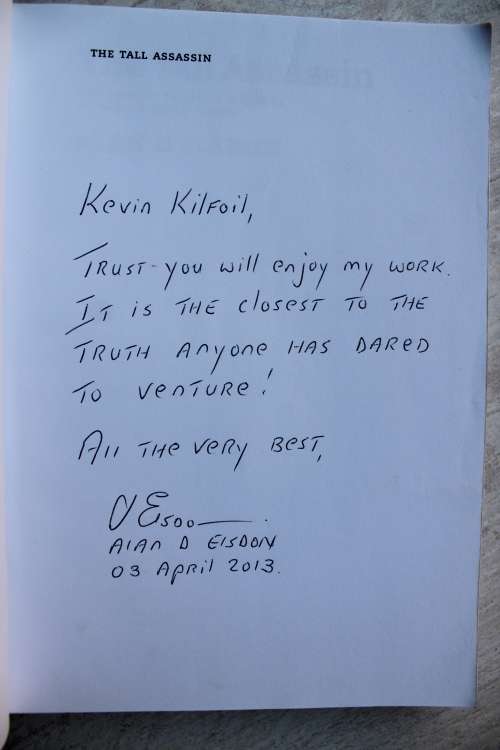 THE TALL ASSASSIN
Kevin Kilfoil,
Trust you will enjoy my work.
It is the closest to the
truth anyone has dared
to venture!
All the very best,
Alan D Elsdon
03 April 2013.